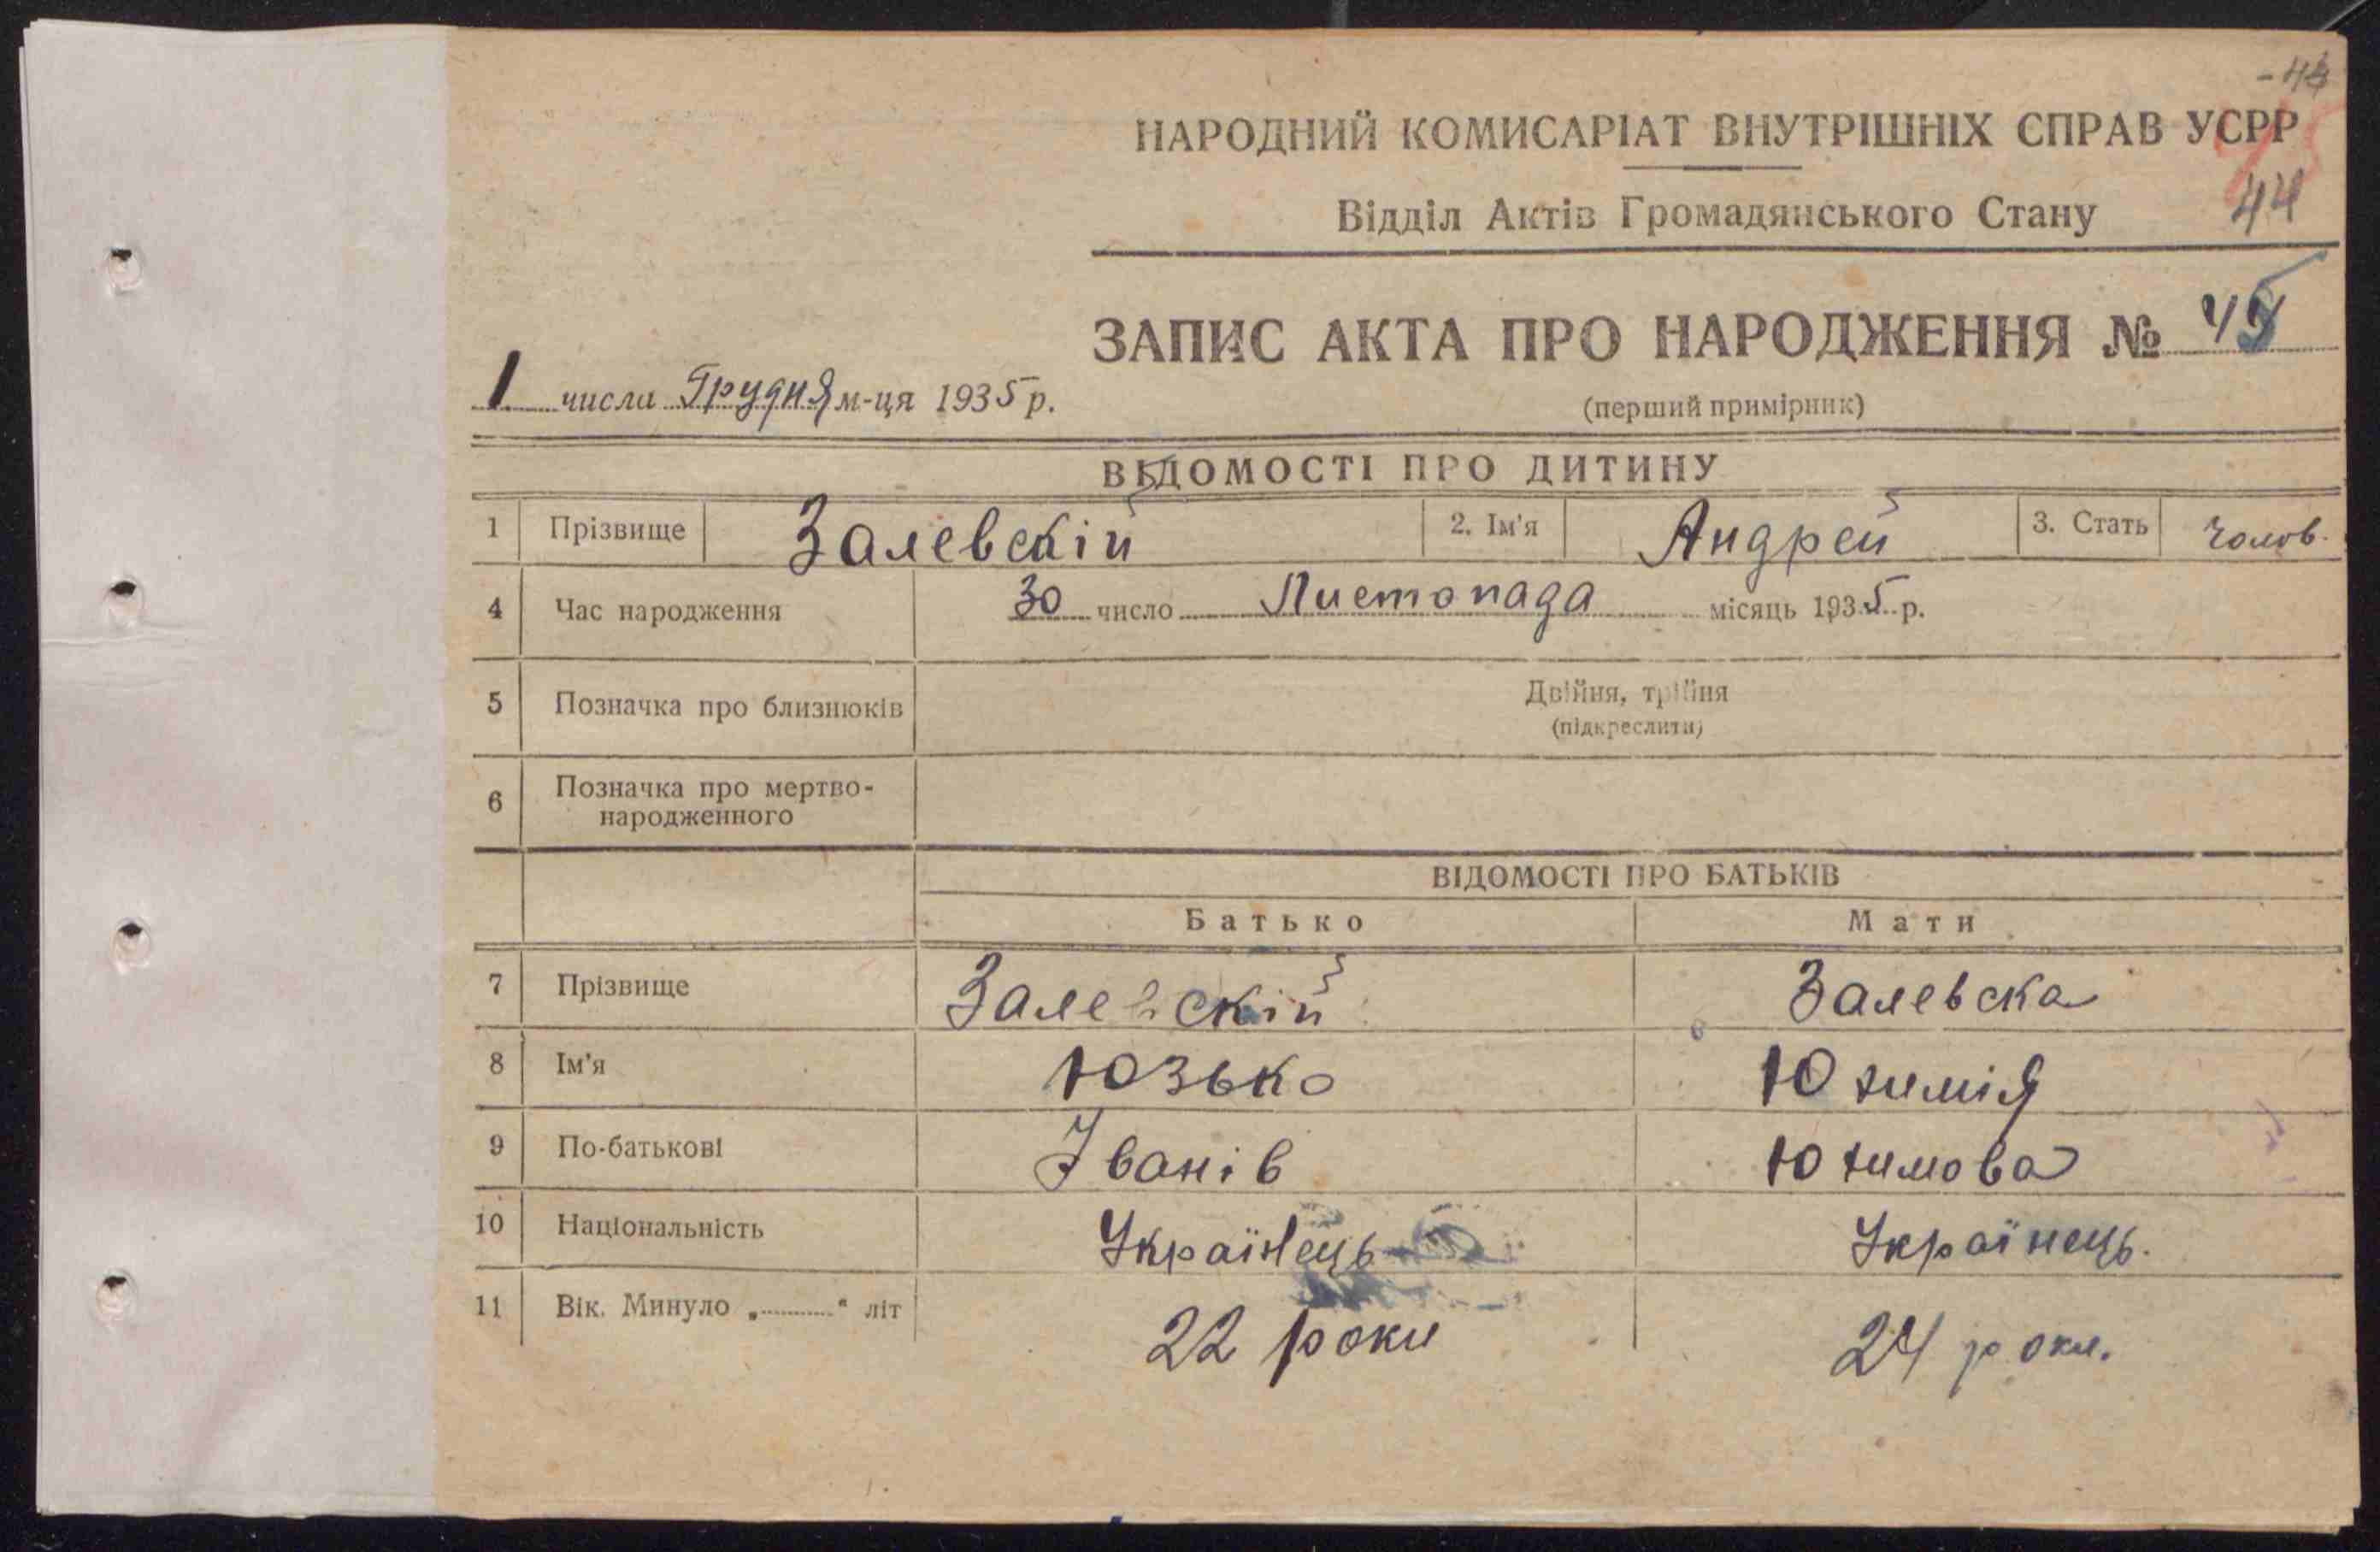 НАРОДНИЙ КОМИСАРІАТ ВНУТРІШНІХ СПРАВ УСРР
Відділ Актів Громадянського Стану 44
ЗАПИС АКТА ПРО НАРОДЖЕННЯ №
1 числа Грудня м-ця 1935 р.
(перший примірник)
ВІДОМОСТІ ПРО ДИТИНУ
1 Прізвище Залевскій 2. Ім'я Андрей 3. Стать Чолов.
4 Час народження 30 число Листопада місяць 1935 р.
5 Позначка про близнюків Двійня, трійня
(підкреслити)
6 Позначка про мертво-
народженного
ВІДОМОСТІ ПРО БАТЬКІВ
Батько Мати
7 Прізвище Залевскій Залевска
8 Ім'я Юзько Юхимія
9 По-батькові Іванів Юхимова
10 Національність Українець Українець.
11 Вік. Минуло „..........“ літ 22 роки 24 роки.